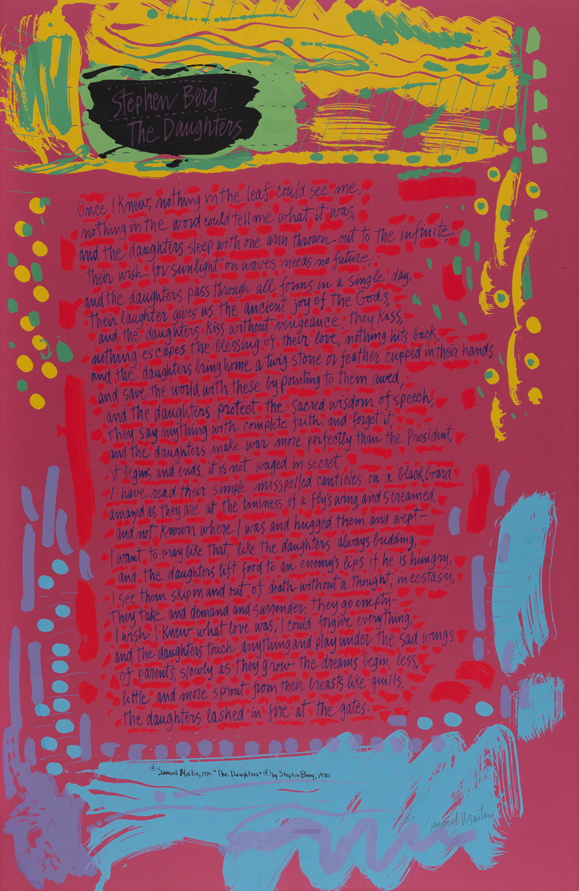 Stephen Berg
The Daughters
Once I Knew, nothing in the leaf could see me,
nothing in the word could tell me what it was,
and the daughters sleep with one arm thrown out to the infinite,
their wish for sunlight on waves needs no future,
and the daughters pass through all forms in a single day,
their laughter gives us the ancient joy of The Gods,
and the daughters kiss without vengeance, they kiss,
nothing escapes the blessing of their love, nothing hits back,
and the daughters bring home a twig stone or feather cupped in their hands
and save the world with these by pointing to them awed,
and the daughters protect the sacred wisdom of speech,
they say anything with complete faith, and forget it,
and the daughters make war more perfectly than the President,
it begins and ends, it is not waged in secret
I have read their simple misspelled canticles on a blackboard
amazed as they are at the tininess of a fly's wing, and screamed,
and not known where I was and hugged them and wept—
I want to pray like that like the daughters always budding,
and the daughters lift food to an enemy's lips if he is hungry,
I see them skip in and out of death without a thought, in ecstasy,
they take and demand and surrender they go empty—
I wish I knew what love was, I could forgive everything,
and the daughters touch anything and play under the sad wings
of parents, slowly as they grow the dreams begin less,
little and more sprout from their breasts like quills,
the daughters lashed in fire at the gates.
© Samuel Maitin, 1971 "The Daughters" © by Stephen Berg, 1970
Samuel Maitin